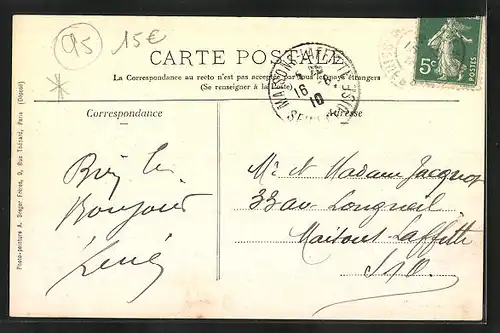 95
15€
CARTE POSTALE
La Correspondance au recto n'est pas acceptée par tous les pays étrangers
(Se renseigner à la Poste)
MAISONS-LAFFITTE
16 6
10
5c
Correspondance
Adresse
Bonjour
René
Mr et Madame Jacquot
33 av Longueil
Maisons Laffitte
S&O
Photo-peinture A. Singer Frères, 9, Rue Thénard, Paris (Déposé)